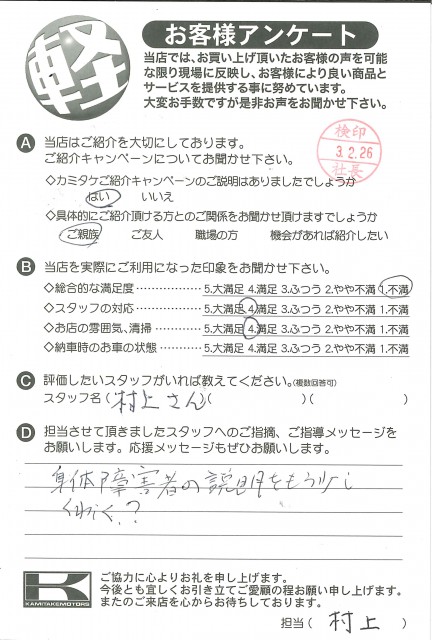 軽
お客様アンケート
当店では、お買い上げ頂いたお客様の声を可能
な限り現場に反映し、お客様により良い商品と
サービスを提供する事に努めています。
大変お手数ですが是非お声をお聞かせ下さい。
検印
3.2.26
社長
A 当店はご紹介を大切にしております。
ご紹介キャンペーンについてお聞かせ下さい。
◇カミタケご紹介キャンペーンのご説明はありましたでしょうか
はい いいえ
◇具体的にご紹介頂ける方とのご関係をお聞かせ頂けますでしょうか
ご親族 ご友人 職場の方 機会があれば紹介したい
B 当店を実際にご利用になった印象をお聞かせ下さい。
◇総合的な満足度 ……………… 5.大満足 4.満足 3.ふつう 2.やや不満 1.不満
◇スタッフの対応 ……………… 5.大満足 4.満足 3.ふつう 2.やや不満 1.不満
◇お店の雰囲気、清掃 ………… 5.大満足 4.満足 3.ふつう 2.やや不満 1.不満
◇納車時のお車の状態 ………… 5.大満足 4.満足 3.ふつう 2.やや不満 1.不満
C 評価したいスタッフがいれば教えてください。(複数回答可)
スタッフ名 ( 村上さん )( )( )
D 担当させて頂きましたスタッフへのご指摘、ご指導メッセージを
お願いします。応援メッセージもぜひお願いします。
身体障害者の説明をもう少し
くわしく?
K
KAMITAKEMOTORS
ご協力に心よりお礼を申し上げます。
今後とも宜しくお引き立てご愛顧の程お願い申し上げます。
またのご来店を心からお待ちしております。
担当 ( 村上 )